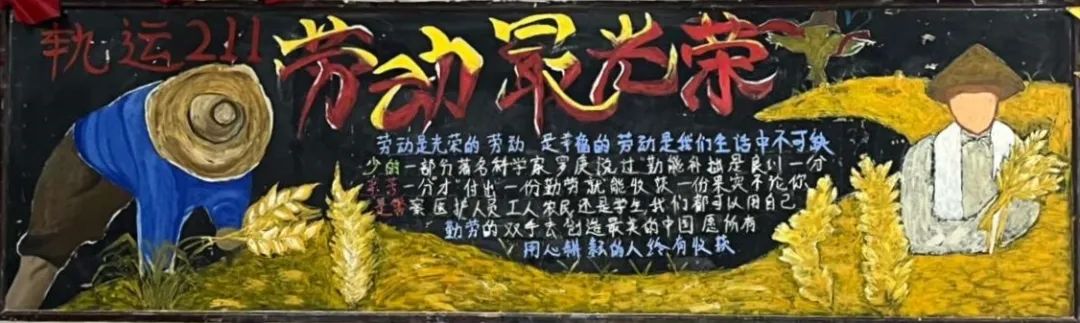 轨运211
劳动最光荣
劳动是光荣的劳动 是幸福的劳动是我们生活中不可缺
少的一部分著名科学家罗庚说过"勤能补拙是良训一分
辛苦一分才"付出一份勤劳就能收获一份果实不论你
是警察医护人员工人农民还是学生我们都可以用自己
勤劳的双手去创造最美的中国愿所有
用心耕耘的人终有收获